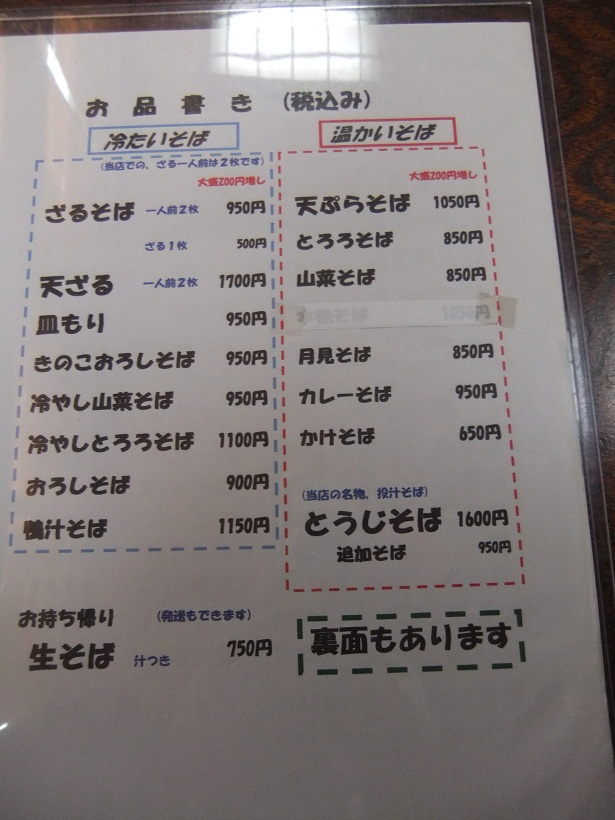 お品書き (税込み)
冷たいそば
(当店での、ざる一人前は2枚です)
大盛200円増し
ざるそば 一人前2枚 950円
ざる1枚 500円
天ざる 一人前2枚 1700円
皿もり 950円
きのこおろしそば 950円
冷やし山菜そば 950円
冷やしとろろそば 1100円
おろしそば 900円
鴨汁そば 1150円
温かいそば
大盛200円増し
天ぷらそば 1050円
とろろそば 850円
山菜そば 850円
そば 1050円
月見そば 850円
カレーそば 950円
かけそば 650円
(当店の名物、投汁そば)
とうじそば 1600円
追加そば 950円
お持ち帰り (発送もできます)
生そば 汁つき 750円
裏面もあります